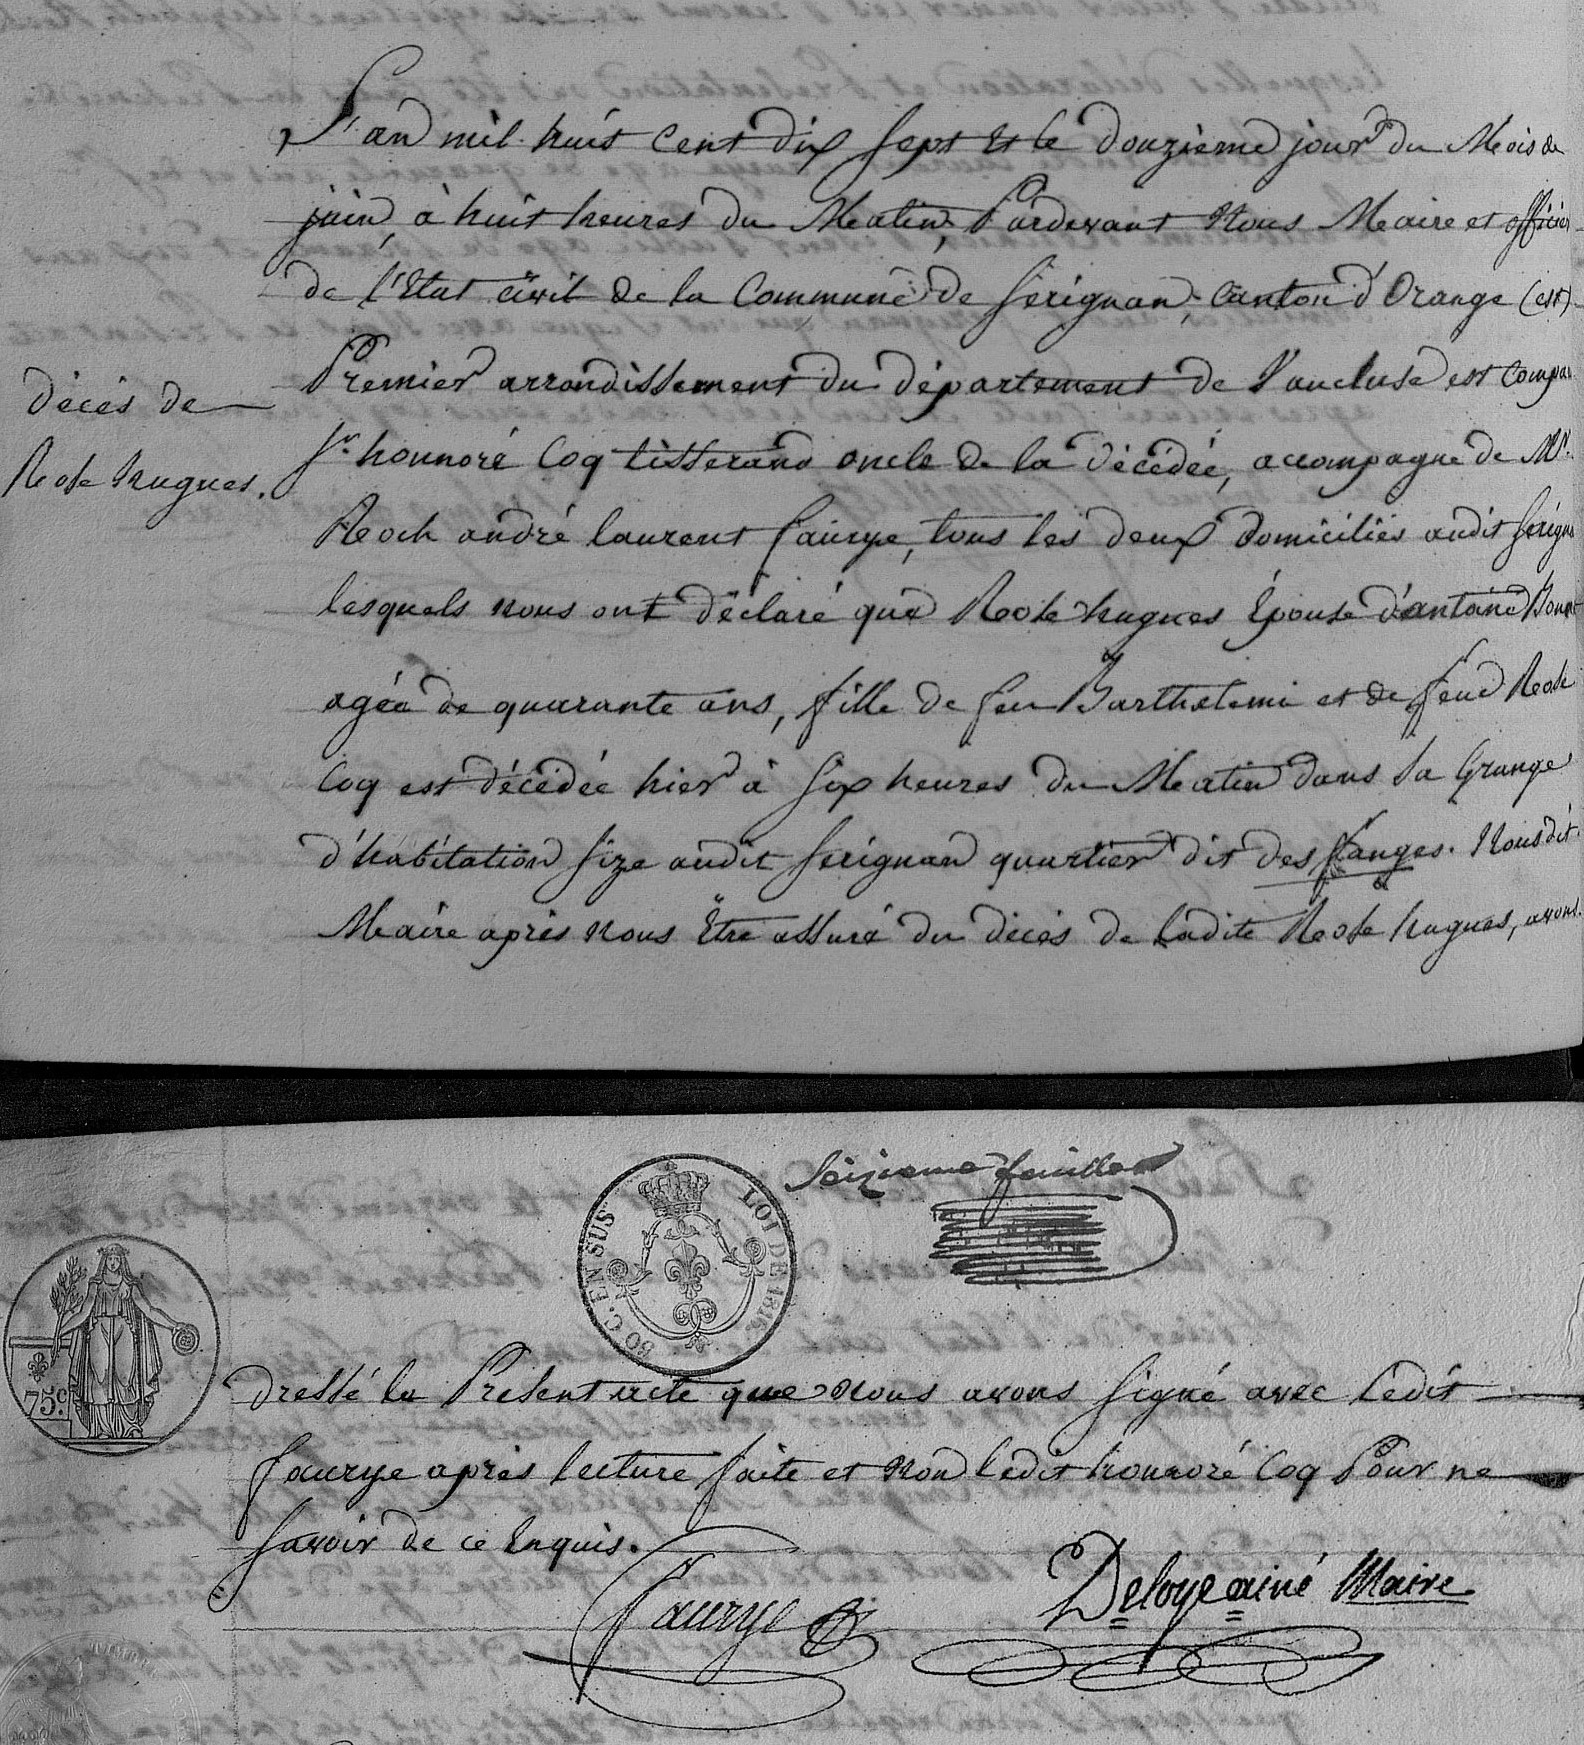 L'an mil huit cent dix sept et le douzieme jour du Mois de
juin, à huit heures du Matin, Pardevant Nous Maire et officier
de l'Etat civil de la Commune de Serignan, Canton d'Orange (est)
Premier arrondissement du département de Vaucluse est compar
décès de
Sr. honnoré Coq tisserand oncle de la décédée, accompagné de Mr.
Rose hugues.
Roch andré laurent faurye, tous les deux domiciliés audit Serigna
lesquels nous ont déclaré que Rose hugues Épouse d'antoine
agée de quarante ans, fille de feu Barthelemi et de feue Rose
Coq est décédée hier à six heures du Matin dans sa Grange
d'habitation size audit Serignan quartier dit des fanges. Nous dit
Maire après nous Être assuré du décès de ladite Rose hugues, avons
Seizieme feuille
LOI DE 1816.
50 C. EN SUS
75c.
dressé le Présent acte que Nous avons signé avec ledit
faurye après lecture faite et Non ledit honnoré Coq Pour ne
savoir de ce Enquis.
faurye
Deloye ainé Maire
TIMBRE